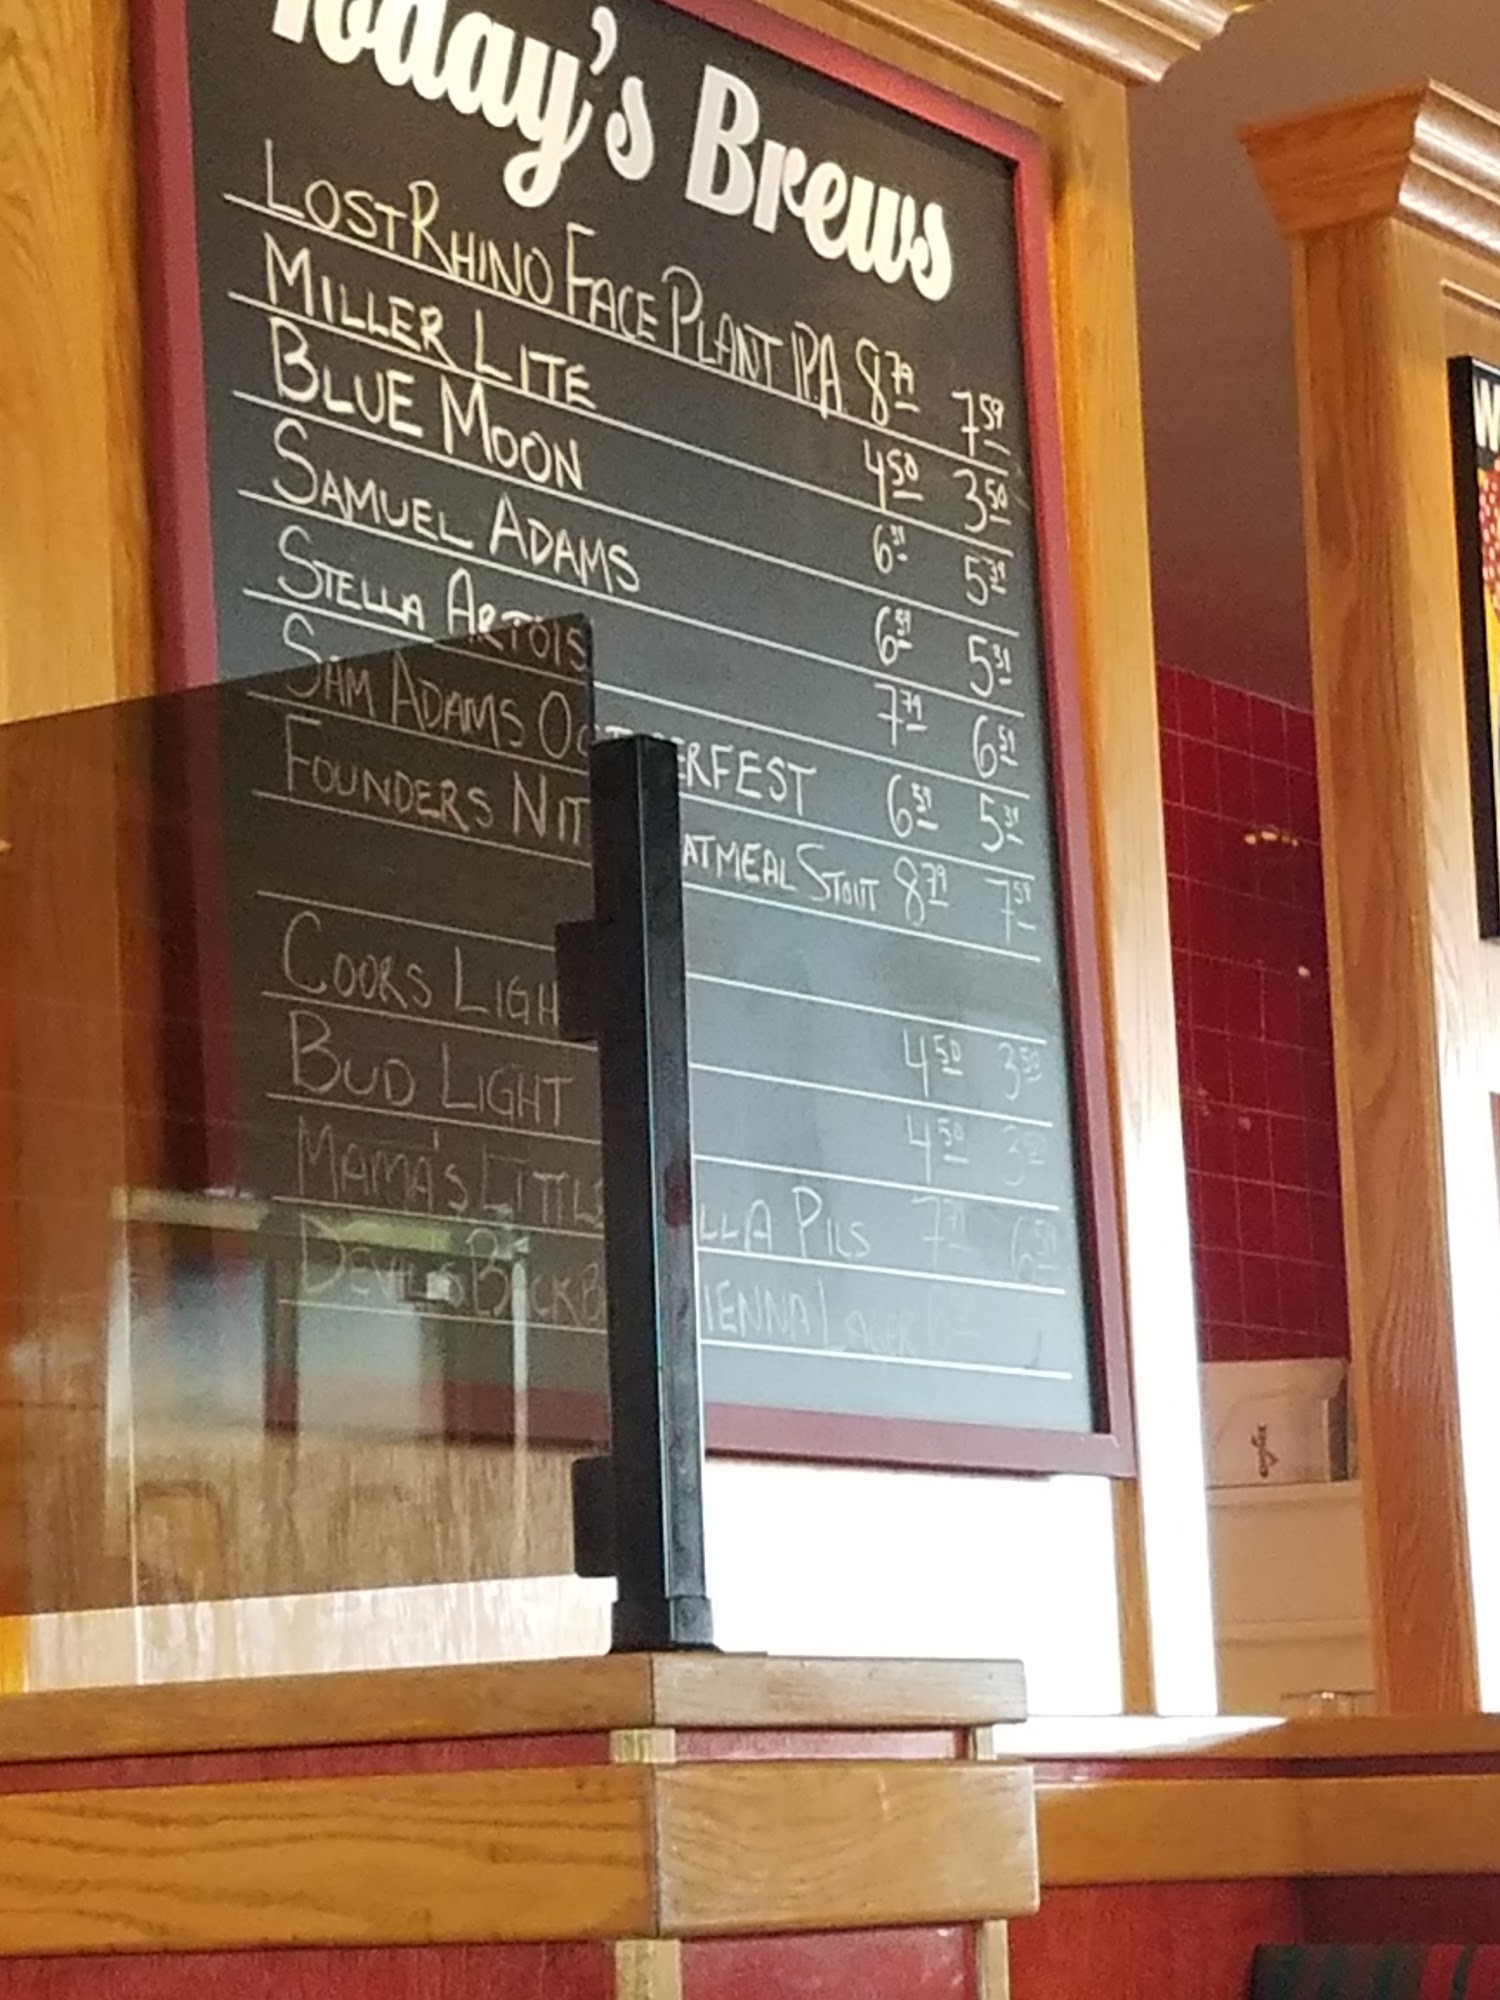 Today's Brews
LOST RHINO FACE PLANT I.P.A. 8 79 7 59
MILLER LITE 4 50 3 50
BLUE MOON 6 59 5 39
SAMUEL ADAMS 6 59 5 39
STELLA ARTOIS 7 79 6 59
SAM ADAMS OCTOBERFEST 6 59 5 39
FOUNDERS NIT ATMEAL STOUT 8 79 7 59
COORS LIGH 4 50 3 50
BUD LIGHT 4 50 3 50
MAMA'S LITTLE LLA PILS 7 79 6 59
DEVIL'S BACKB IENNA LAGER
W